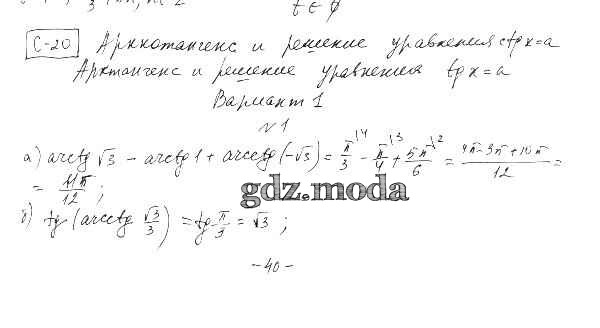 t ∈ ∅
С-20 Арккотангенс и решение уравнения ctg x = a
Арктангенс и решение уравнения tg x = a
Вариант 1
№1
а) arctg √3 − arctg 1 + arcctg (−√3) = π/3 |4 − π/4 |3 + 5π/6 |2 = (4π − 3π + 10π)/12 =
= 11π/12 ;
gdz.moda
б) tg (arcctg √3/3) = tg π/3 = √3 ;
− 40 −